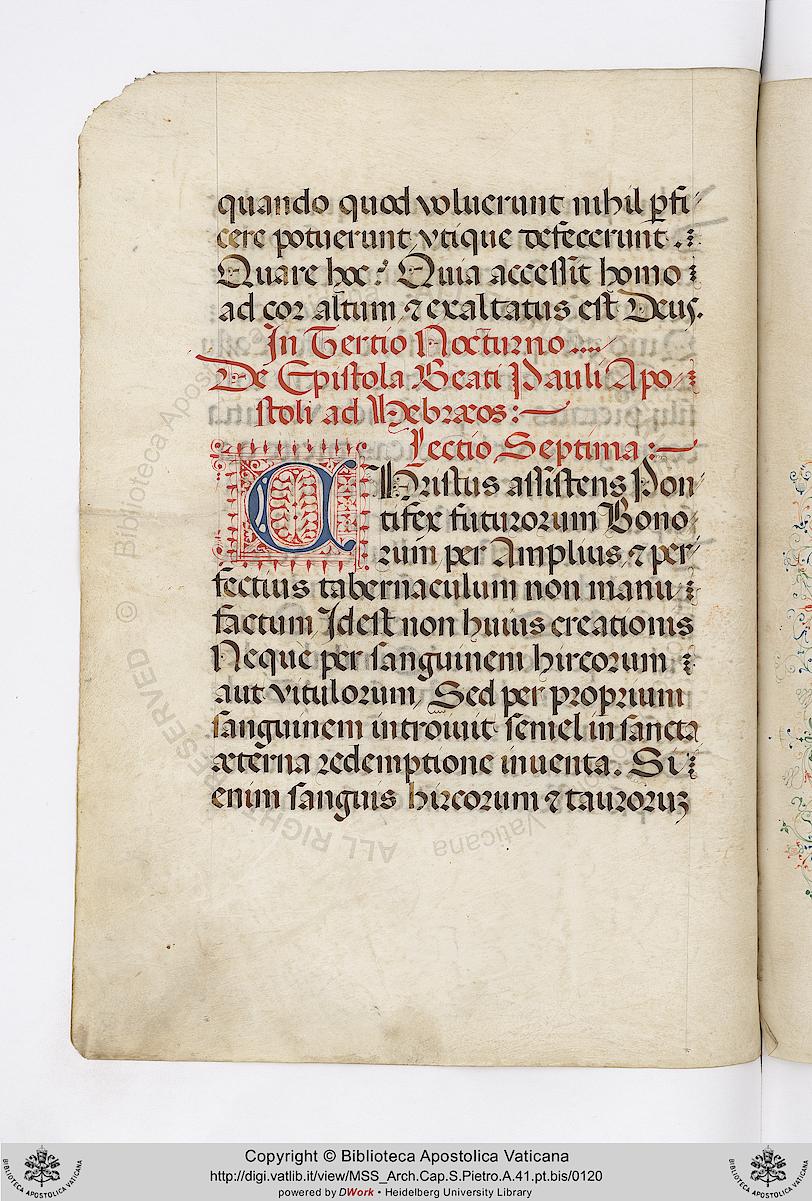 quando quod voluerunt nihil ꝑfi-
cere potuerunt, vtique defecerunt.
Quare hoc? Quia accessit homo
ad cor altum ⁊ exaltatus est Deus.
In Tertio Nocturno ....
De Epistola Beati Pauli Apo-
stoli ad Hebræos:
Lectio Septima:
CHristus assistens Pon
tifex futurorum Bono
rum per Amplius, ⁊ per-
fectius tabernaculum non manu
factum Idest non huius creationis
Neque per sanguinem hircorum
aut vitulorum, Sed per proprium
sanguinem introiuit semel in sancta
æterna redemptione inuenta. Si
enim sanguis hircorum ⁊ tauroruꝫ
© Biblioteca Apostolica Vaticana
ALL RIGHTS RESERVED
Copyright © Biblioteca Apostolica Vaticana
http://digi.vatlib.it/view/MSS_Arch.Cap.S.Pietro.A.41.pt.bis/0120
powered by DWork • Heidelberg University Library
BIBLIOTECA APOSTOLICA VATICANA
BIBLIOTECA APOSTOLICA VATICANA